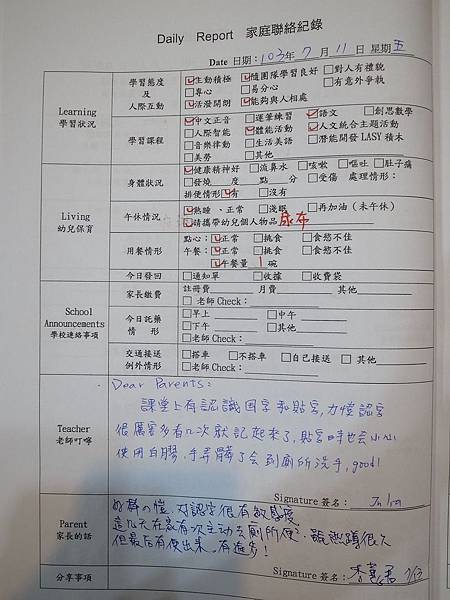 Daily Report 家庭聯絡紀錄
Date 日期：103年 7 月 11 日 星期 五
Learning 學習狀況
學習態度及人際互動
☑生動積極 ☑隨團隊學習良好 □對人有禮貌
□專心 □易分心 □有意外爭執
☑活潑開朗 ☑能夠與人相處
學習課程
☑中文正音 □運筆練習 ☑語文 □創思數學
□人際智能 ☑體能活動 ☑人文統合主題活動
□音樂律動 □生活美語 □潛能開發LASY積木
□美勞 □其他
Living 幼兒保育
身體狀況
☑健康精神好 □流鼻水 □咳嗽 □嘔吐 □肚子痛
□發燒 度 點 分 □受傷 處理情形：
排便情形☑有 □沒有
午休情況
☑熟睡、正常 □淺眠 □再加油（未午休）
☑請攜帶幼兒個人物品 尿布
用餐情形
點心：☑正常 □挑食 □食慾不佳
午餐：☑正常 □挑食 □食慾不佳
☑午餐量 1 碗
今日發回 □通知單 □收據 □收費袋
School Announcements 學校連絡事項
家長繳費
註冊費 月費 其他
□ 老師Check：
今日託藥情形
□早上 □中午
□下午 □其他
□老師Check：
交通接送例外情形
□搭車 □不搭車 □自己接送 □ 其他
□老師Check：
Teacher 老師叮嚀
Dear Parents:
課堂上有認識国字和貼字,力愷認字
很厲害多看几次就記起來了,貼字時也会小心
使用白膠,手弄髒了会到廁所洗手,good!
Signature 簽名：
Parent 家長的話
愷,对認字很有敏感度
這几天在家有次主动去廁所便便,雖然蹲很久
但最后有便出来,有進步!
Signature 簽名： 7/13
分享事項